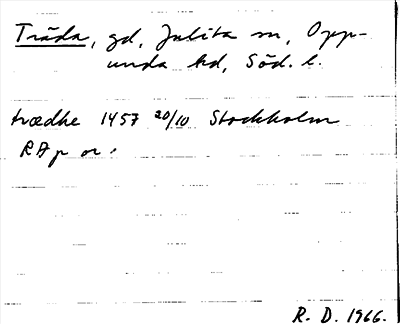 Träda, gd, Julita sn, Opp-
unda hd, Söd. l.
trædhe 1457 20/10 Stockholm
RAp or.
R. D. 1966.